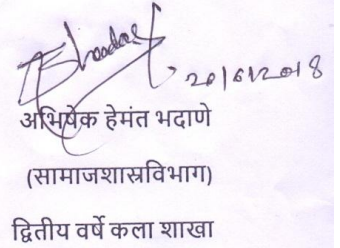 20/6/2018
अभिषेक हेमंत भदाणे
(सामाजशास्रविभाग)
द्वितीय वर्षे कला शाखा